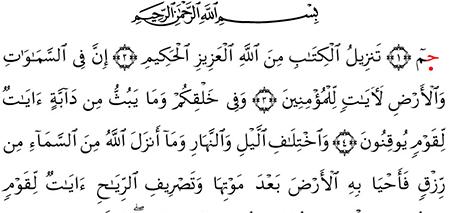 بِسْمِ اللَّهِ الرَّحْمَٰنِ الرَّحِيمِ
جمٓ ﴿١﴾ تَنزِيلُ ٱلْكِتَٰبِ مِنَ ٱللَّهِ ٱلْعَزِيزِ ٱلْحَكِيمِ ﴿٢﴾ إِنَّ فِى ٱلسَّمَٰوَٰتِ
وَٱلْأَرْضِ لَءَايَٰتٍ لِّلْمُؤْمِنِينَ ﴿٣﴾ وَفِى خَلْقِكُمْ وَمَا يَبُثُّ مِن دَآبَّةٍ ءَايَٰتٌ
لِّقَوْمٍ يُوقِنُونَ ﴿٤﴾ وَٱخْتِلَٰفِ ٱلَّيْلِ وَٱلنَّهَارِ وَمَآ أَنزَلَ ٱللَّهُ مِنَ ٱلسَّمَآءِ مِن
رِّزْقٍ فَأَحْيَا بِهِ ٱلْأَرْضَ بَعْدَ مَوْتِهَا وَتَصْرِيفِ ٱلرِّيَٰحِ ءَايَٰتٌ لِّقَوْمٍ